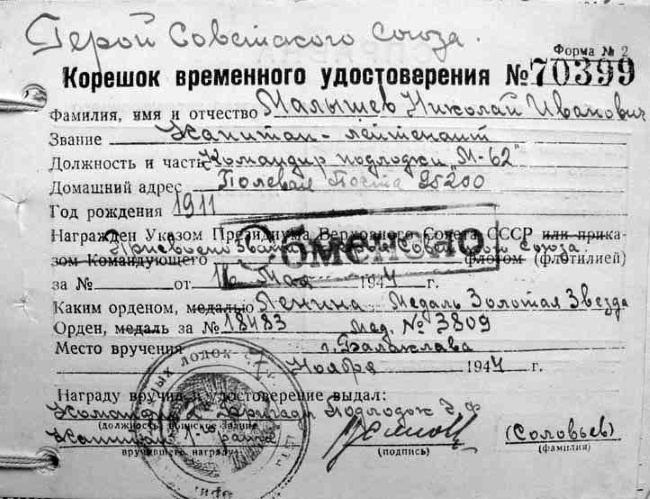 Герой Советского Союза.
Форма № 2
Корешок временного удостоверения № 70399
Фамилия, имя и отчество Малышев Николай Иванович
Звание Капитан-лейтенант
Должность и часть Командир подлодки „М-62"
Домашний адрес Полевая Почта 25200
Год рождения 1911
Награжден Указом Президиума Верховного Совета СССР или прика-
Присвоено Звание Советского Союза.
зом Командующего флотом (флотилией)
Обменено
за № от 16 Мая 1944 г.
Каким орденом, медалью Ленина Медаль Золотая Звезда
Орден, медаль за № 18483 Мед. № 3809
Место вручения г. Балаклава
7 Ноября 1944 г.
Награду вручил и удостоверение выдал:
Командир Бригады Подлодок ЧФ
(должность, воинское звание
Капитан 1- ранга (Соловьев)
вручившего награду) (подпись) (фамилия)